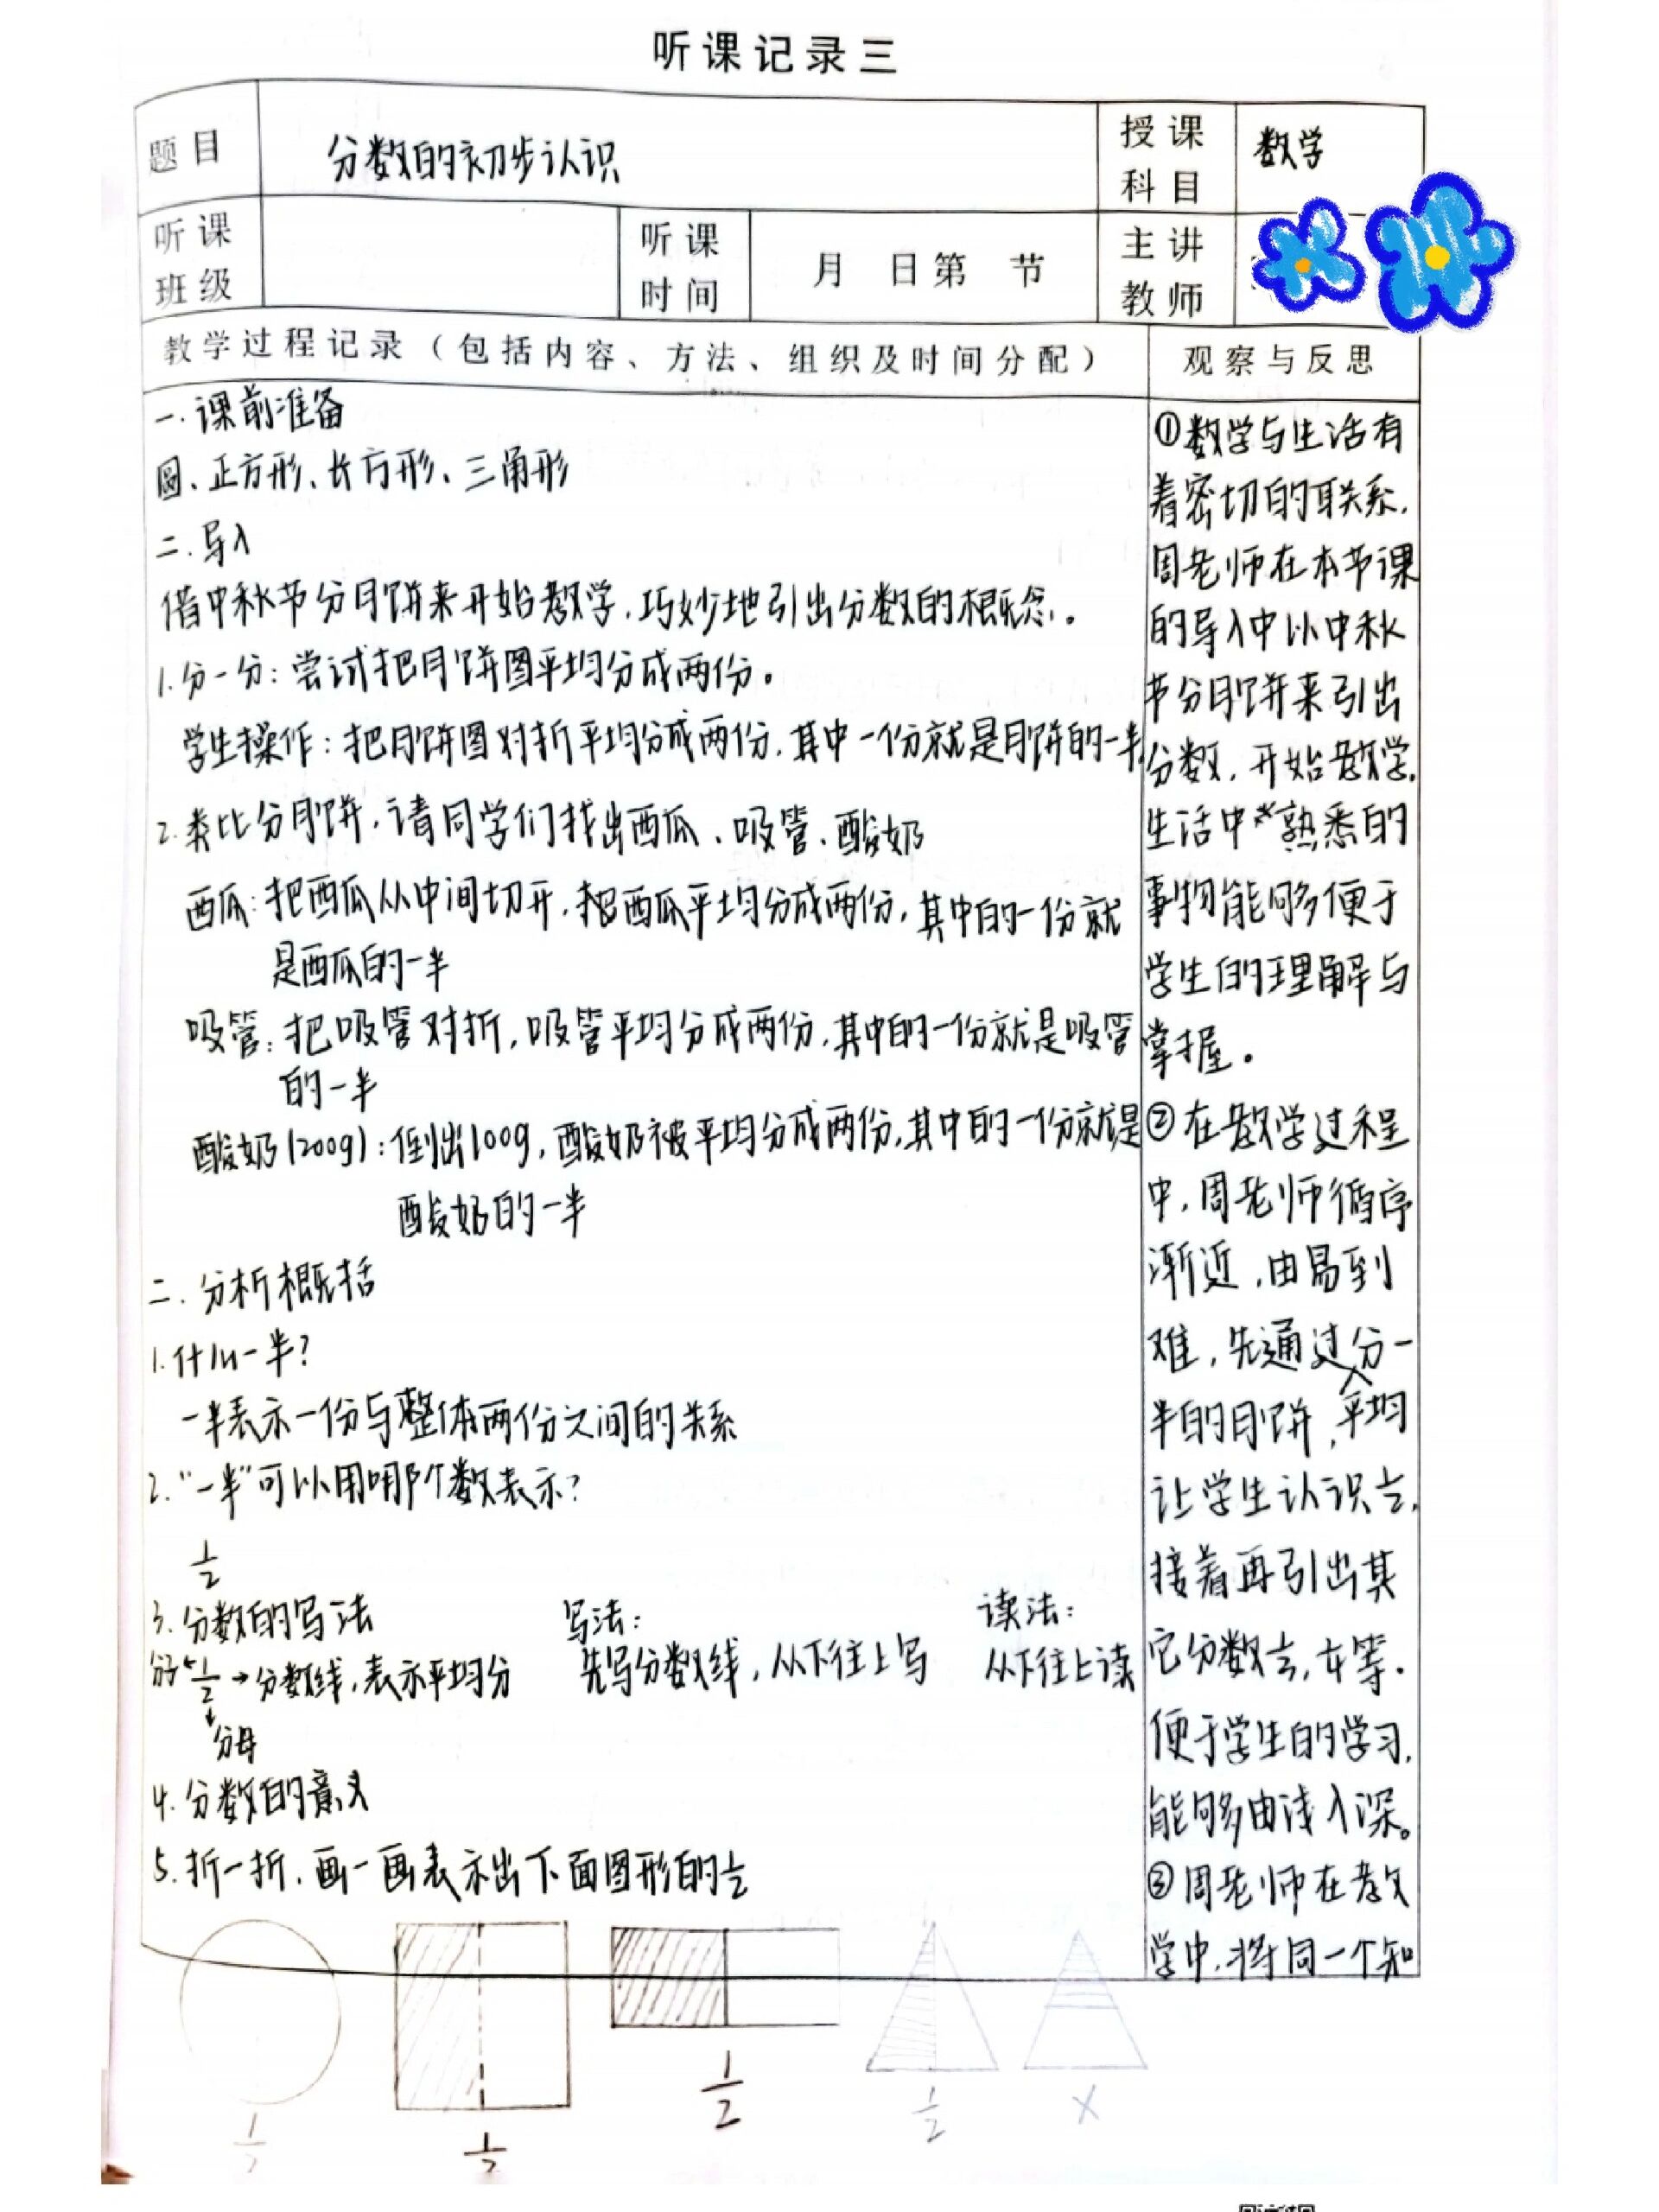 听课记录三
题目
分数的初步认识
授课科目
数学
听课班级
听课时间
月 日第 节
主讲教师
教学过程记录（包括内容、方法、组织及时间分配）
观察与反思
一.课前准备
圆、正方形、长方形、三角形
二.导入
借中秋节分月饼来开始教学,巧妙地引出分数的概念。
1.分一分:尝试把月饼图平均分成两份。
学生操作:把月饼图对折平均分成两份,其中一份就是月饼的一半。
2.类比分月饼,请同学们找出西瓜、吸管、酸奶
西瓜:把西瓜从中间切开,把西瓜平均分成两份,其中的一份就
是西瓜的一半
吸管:把吸管对折,吸管平均分成两份,其中的一份就是吸管
的一半
酸奶(200g):倒出100g,酸奶被平均分成两份,其中的一份就是
酸奶的一半
二.分析概括
1.什么一半?
一半表示一份与整体两份之间的关系
2."一半"可以用哪个数表示?
1/2
3.分数的写法 写法: 读法:
分子←1/2→分数线,表示平均分 先写分数线,从下往上写 从下往上读
↓
分母
4.分数的意义
5.折一折,画一画表示出下面图形的1/2
1/2 1/2 1/2 1/2 ×
①数学与生活有
着密切的联系,
周老师在本节课
的导入中以中秋
节分月饼来引出
分数,开始教学,
生活中熟悉的
事物能够便于
学生的理解与
掌握。
②在教学过程
中,周老师循序
渐近,由易到
难,先通过分一
半的月饼,平均
让学生认识1/2,
接着再引出其
它分数1/3,1/4等.
便于学生的学习,
能够由浅入深。
③周老师在教
学中,将同一个知